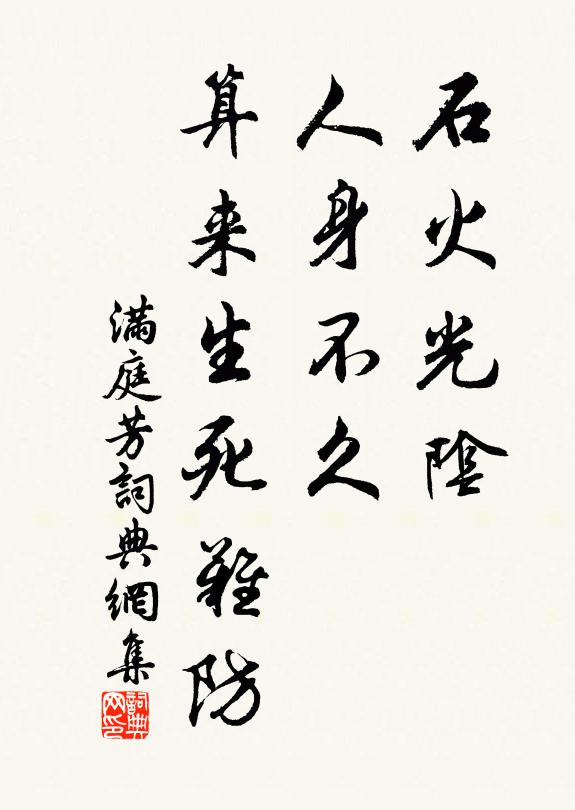 石火光陰
人身不久
算来生死難防
滿庭芳詞典網集
詞典网印